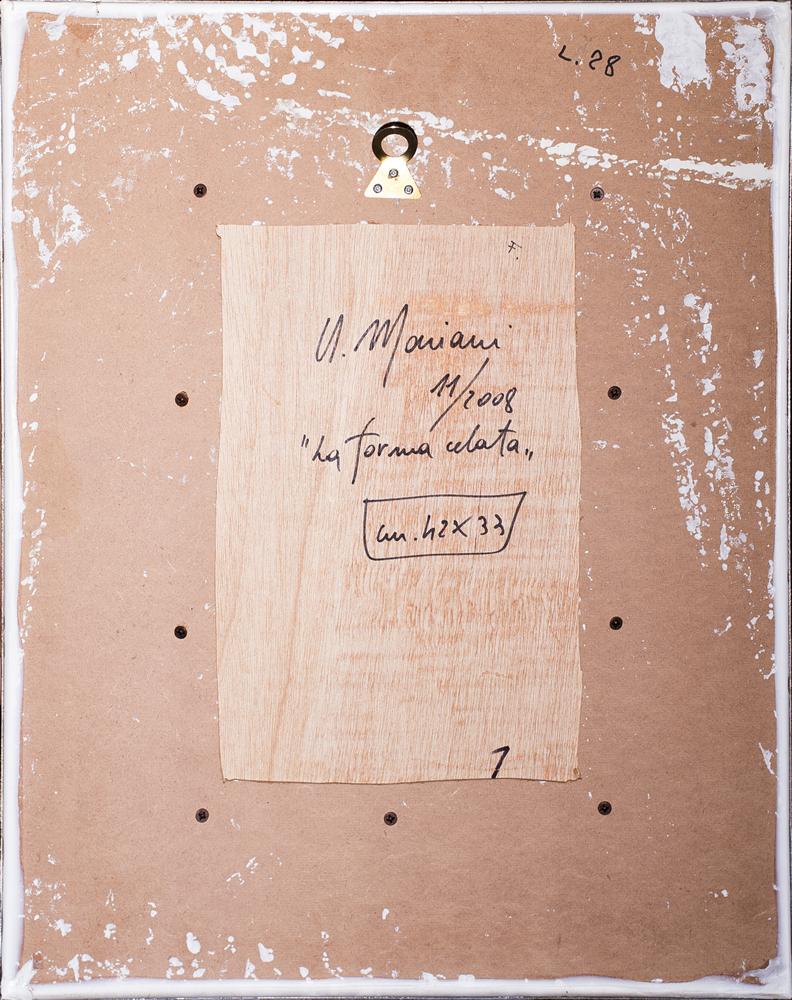 L. 28
F.
U. Mariani
11/2008
"La forma celata„
cm. 42X33
1